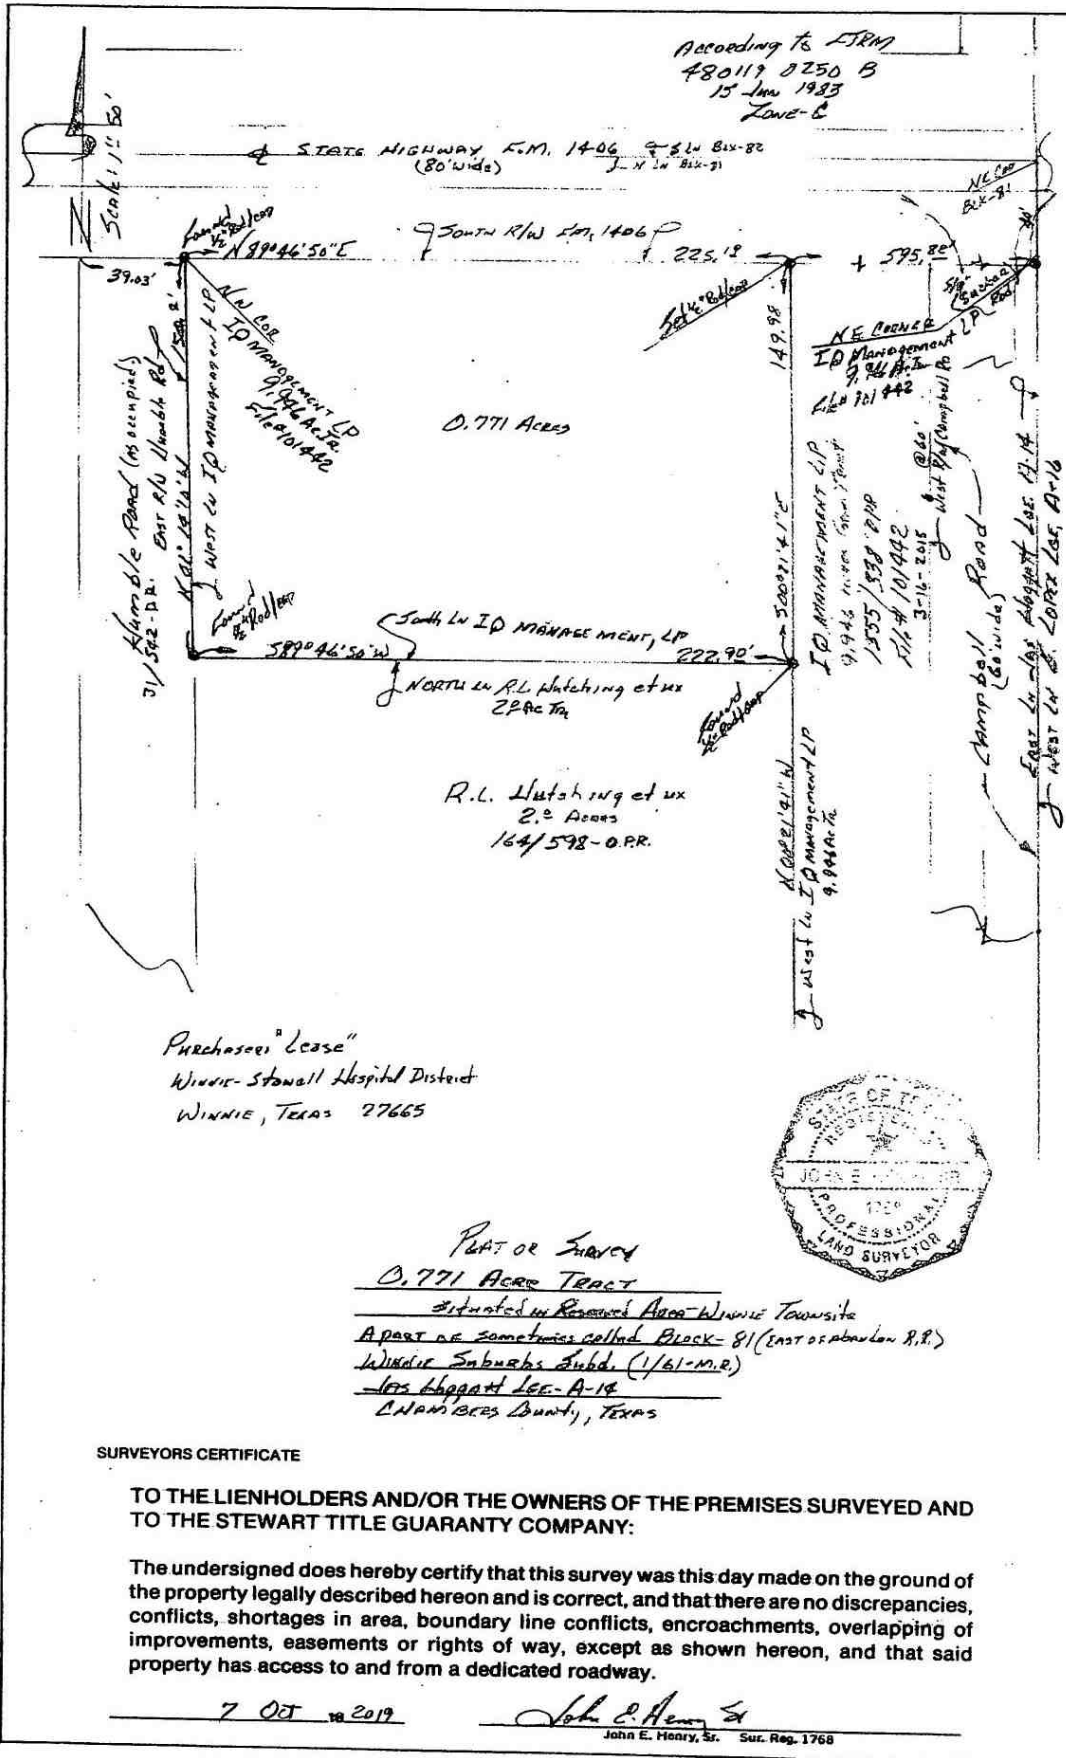 According to FIRM
480119 0250 B
15 Jun 1983
Zone-C
Scale: 1" 50'
STATE HIGHWAY F.M. 1406
(80' wide)
S Ln Blk-82
N Ln Blk-81
NE Cor
Blk-81
Found
1/2" Rod/cap
N 89°46'50"E
South R/W F.M. 1406
225.19
595.82
39.03'
Set 1/2" Rod/cap
149.98
COR
IQ MANAGEMENT LP
9.946 Ac. Tr.
File #101442
NE CORNER
IQ MANAGEMENT LP
File # 101442
0.771 Acres
Humble Road (as occupied)
31/542-D.R.
East R/W Humble Rd
West Ln IQ MANAGEMENT LP
S00°21'41"E
IQ MANAGEMENT LP
1555/338 OPR
File # 101442
3-16-2015
@60'
West R/W Campbell Rd
Campbell Road
(60' wide)
Found
1/2" Rod/cap
South Ln IQ MANAGEMENT, LP
S89°46'50"W
222.90'
NORTH Ln R.L. Hutching et ux
Found
1/2" Rod/cap
R.L. Hutching et ux
2.0 Acres
164/598-O.P.R.
N00°21'41"W
West Ln IQ Management LP
9.946 Ac Tr
Purchaser: "Lease"
Winnie-Stowell Hospital District
WINNIE, TEXAS 77665
STATE OF
REGISTERED
PROFESSIONAL
LAND SURVEYOR
PLAT OR SURVEY
0.771 ACRE TRACT
situated in Reserved Area-Winnie Townsite
A part of sometimes called BLOCK-81 (EAST OF abandon R.R.)
Winnie Suburbs Subd. (1/61-M.R.)
CHAMBERS County, TEXAS
SURVEYORS CERTIFICATE
TO THE LIENHOLDERS AND/OR THE OWNERS OF THE PREMISES SURVEYED AND
TO THE STEWART TITLE GUARANTY COMPANY:
The undersigned does hereby certify that this survey was this day made on the ground of
the property legally described hereon and is correct, and that there are no discrepancies,
conflicts, shortages in area, boundary line conflicts, encroachments, overlapping of
improvements, easements or rights of way, except as shown hereon, and that said
property has access to and from a dedicated roadway.
7 Oct 2019
John E. Henry Sr
John E. Henry, Sr. Sur. Reg. 1768